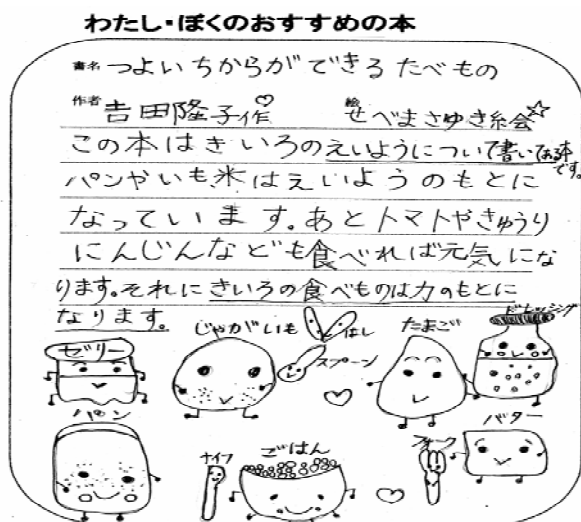 わたし・ぼくのおすすめの本
書名 つよいちからができるたべもの
作者 吉田隆子作 絵 せべまさゆき絵☆
この本はきいろのえいようについて書いてある本です。
パンやいも米はえいようのもとに
なっています。あとトマトやきゅうり
にんじんなども食べれば元気にな
ります。それにきいろの食べものは力のもとに
なります。
ゼリー じゃがいも はし スプーン たまご ドレッシング
パン ナイフ ごはん フォーク バター